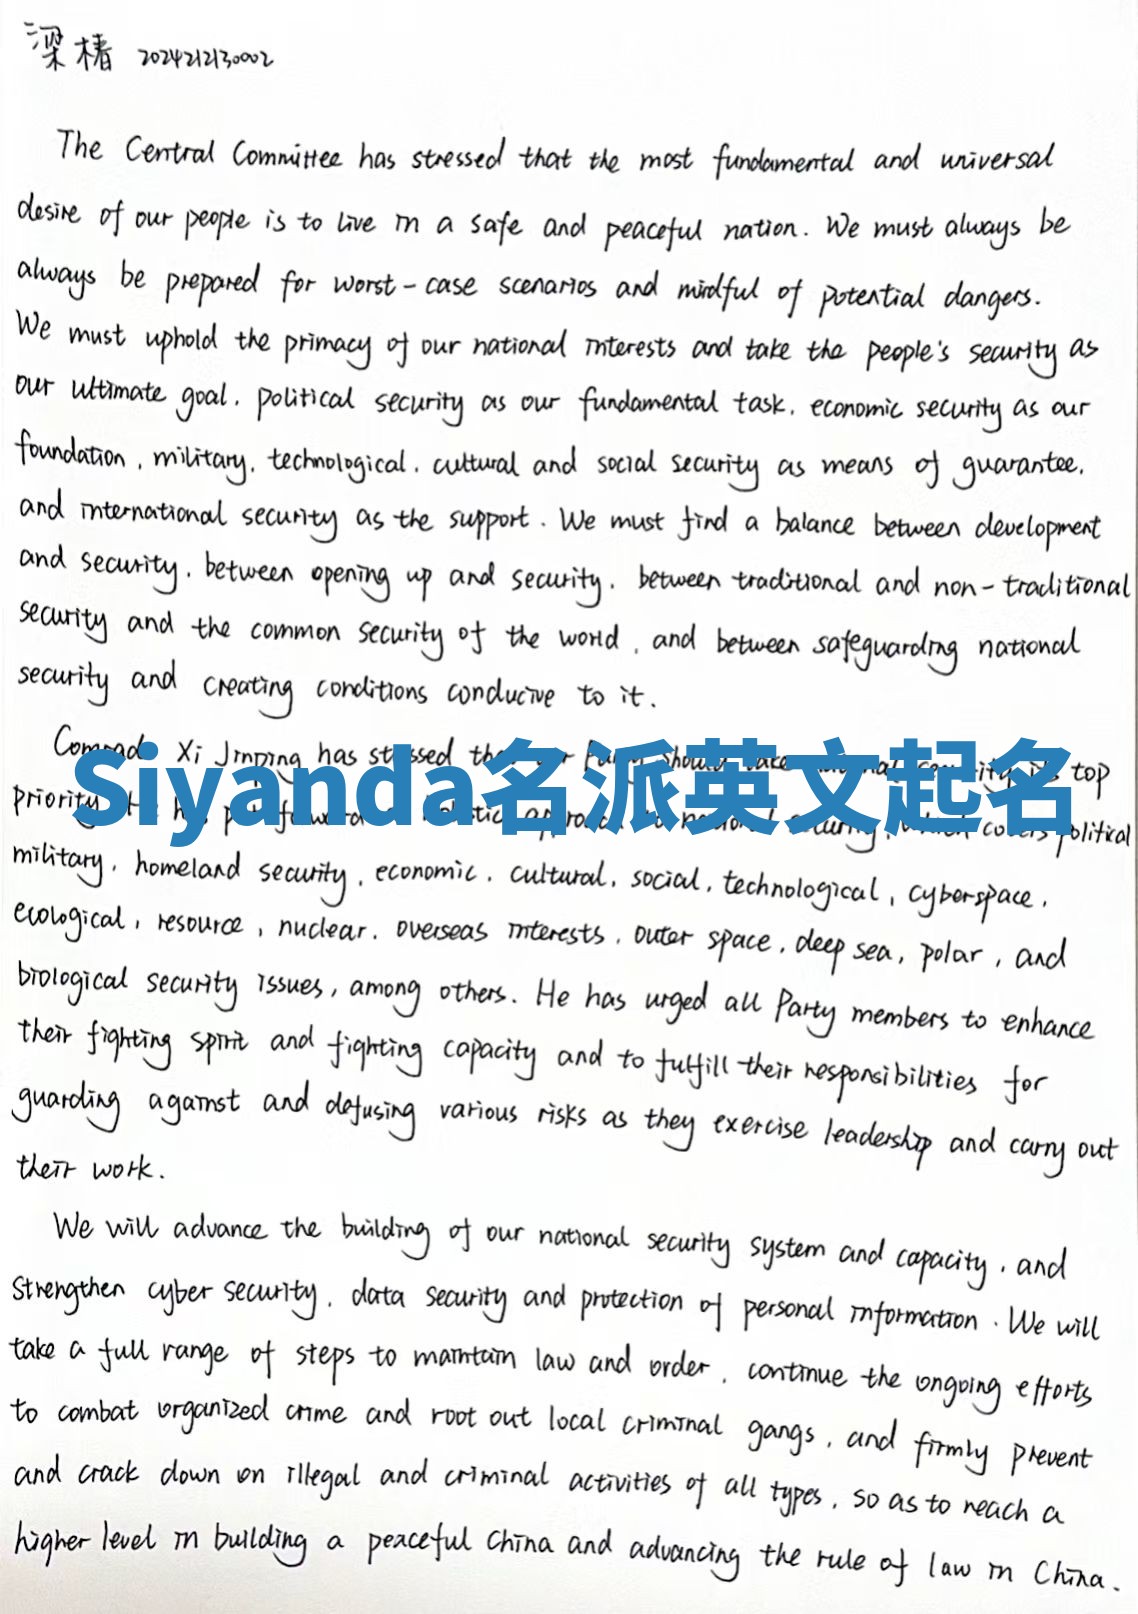 梁椿 2024212130002
The Central Committee has stressed that the most fundamental and universal
desire of our people is to live in a safe and peaceful nation. We must always be
always be prepared for worst-case scenarios and mindful of potential dangers.
We must uphold the primacy of our national interests and take the people's security as
our ultimate goal, political security as our fundamental task, economic security as our
foundation, military, technological, cultural and social security as means of guarantee,
and international security as the support. We must find a balance between development
and security, between opening up and security, between traditional and non-traditional
security and the common security of the world, and between safeguarding national
security and creating conditions conducive to it.
Comrade Xi Jinping has stressed top
Siyanda名派英文起名
priority political
military, homeland security, economic, cultural, social, technological, cyberspace,
ecological, resource, nuclear, overseas interests, outer space, deep sea, polar, and
biological security issues, among others. He has urged all Party members to enhance
their fighting spirit and fighting capacity and to fulfill their responsibilities for
guarding against and defusing various risks as they exercise leadership and carry out
their work.
We will advance the building of our national security system and capacity, and
strengthen cyber security, data security and protection of personal information. We will
take a full range of steps to maintain law and order, continue the ongoing efforts
to combat organized crime and root out local criminal gangs, and firmly prevent
and crack down on illegal and criminal activities of all types, so as to reach a
higher level in building a peaceful China and advancing the rule of law in China.